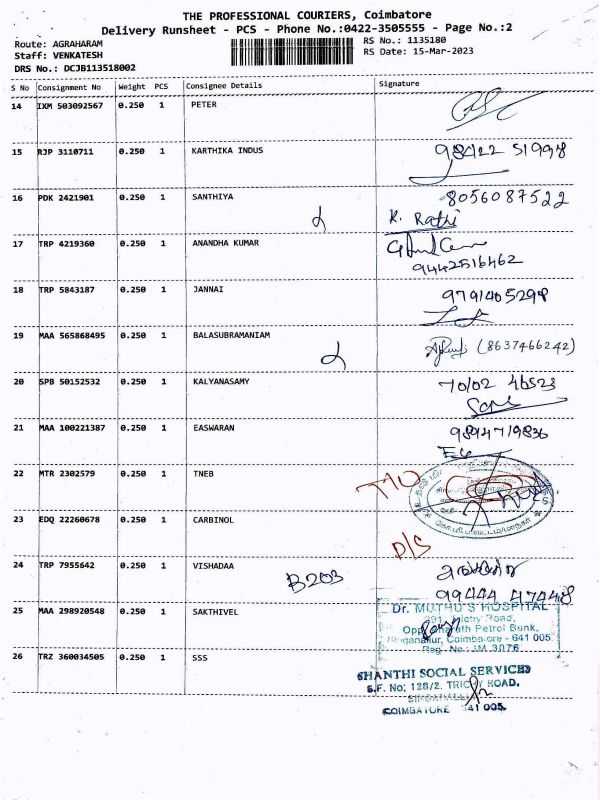 THE PROFESSIONAL COURIERS, Coimbatore
Delivery Runsheet - PCS - Phone No.:0422-3505555 - Page No.:2
Route: AGRAHARAM
RS No.: 1135180
Staff: VENKATESH
RS Date: 15-Mar-2023
DRS No.: DCJB113518002
S No Consignment No Weight PCS Consignee Details Signature
14 IXM 503092567 0.250 1 PETER
15 RJP 3110711 0.250 1 KARTHIKA INDUS 98422 51998
16 PDK 2421901 0.250 1 SANTHIYA 8056087522
K. Rathi
17 TRP 4219360 0.250 1 ANANDHA KUMAR
9442516462
18 TRP 5843187 0.250 1 JANNAI 9791405298
19 MAA 565868495 0.250 1 BALASUBRAMANIAM (8637466242)
20 SPB 50152532 0.250 1 KALYANASAMY 70102 46523
21 MAA 100221387 0.250 1 EASWARAN 9894719836
22 MTR 2302579 0.250 1 TNEB
23 EDQ 22260678 0.250 1 CARBINOL
D/S
24 TRP 7955642 0.250 1 VISHADAA
B203
99444 47448
25 MAA 298920548 0.250 1 SAKTHIVEL
Dr. MUTHU'S HOSPITAL
Road,
Petrol Bunk,
Coimbatore - 641 005
Reg. No.: JM 3076
26 TRZ 360034505 0.250 1 SSS
SHANTHI SOCIAL SERVICES
S.F. No: 128/2. TRICHY ROAD,
COIMBATORE 641 005.